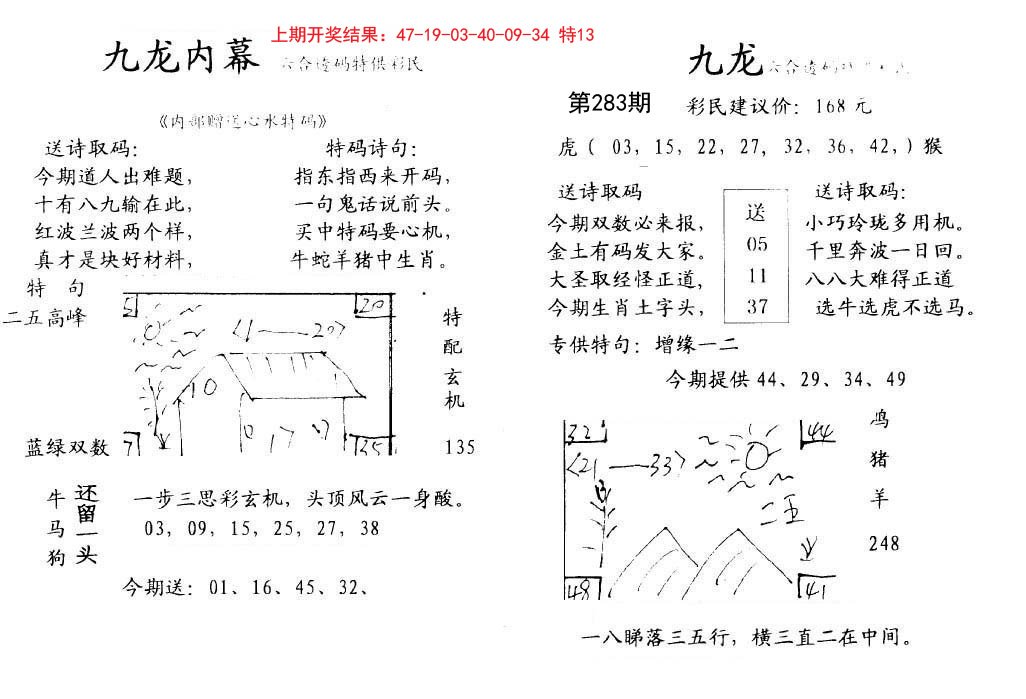 上期开奖结果：47-19-03-40-09-34 特13
九龙内幕 六合透码特供彩民
《内部赠送心水特码》
送诗取码：
今期道人出难题，
十有八九输在此，
红波兰波两个样，
真才是块好材料，
特码诗句：
指东指西来开码，
一句鬼话说前头。
买中特码要心机，
牛蛇羊猪中生肖。
特 句
二五高峰
蓝绿双数
5
20
《1——20》
10
0 17
7
35
特
配
玄
机
135
牛
马
狗
还
留
一
头
一步三思彩玄机，头顶风云一身酸。
03, 09, 15, 25, 27, 38
今期送：01、16、45、32、
九龙 六合透码
第283期 彩民建议价：168元
虎（ 03, 15, 22, 27, 32, 36, 42,）猴
送诗取码
今期双数必来报，
金土有码发大家。
大圣取经怪正道，
今期生肖土字头，
送
05
11
37
送诗取码：
小巧玲珑多用机。
千里奔波一日回。
八八大难得正道
选牛选虎不选马。
专供特句：增缘一二
今期提供44、29、34、49
32
44
《21——33》
二五
48
41
鸡
猪
羊
248
一八睇落三五行，横三直二在中间。